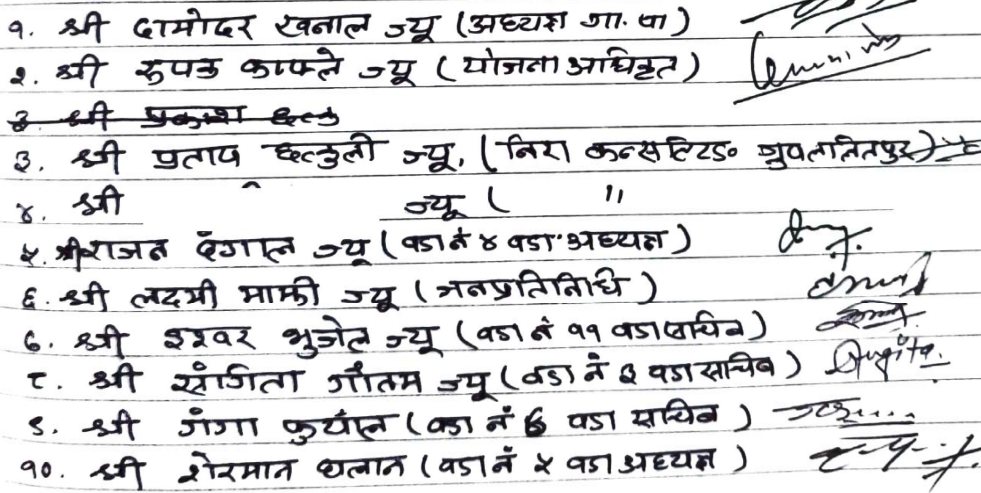 १. श्री दामोदर खनाल ज्यू (अध्यक्ष गा. पा)
२. श्री रुपक काफ्ले ज्यू (योजना अधिकृत)
३. श्री प्रकाश
३. श्री प्रताप छत्कुली ज्यू, (निरा कन्सल्टिङ॰ ग्रुप ललितपुर)
४. श्री ज्यू ( "
५. श्री राजन दंगाल ज्यू (वडा नं ४ वडा अध्यक्ष)
६. श्री लक्ष्मी माझी ज्यू (जनप्रतिनिधि)
७. श्री इश्वर भुजेल ज्यू (वडा नं ११ वडा सचिव)
८. श्री संगिता गौतम ज्यू (वडा नं ३ वडा सचिव) Sugita.
९. श्री गंगा कुयाँल (वडा नं ६ वडा सचिव)
१०. श्री शेरमान थलान (वडा नं ५ वडा अध्यक्ष)